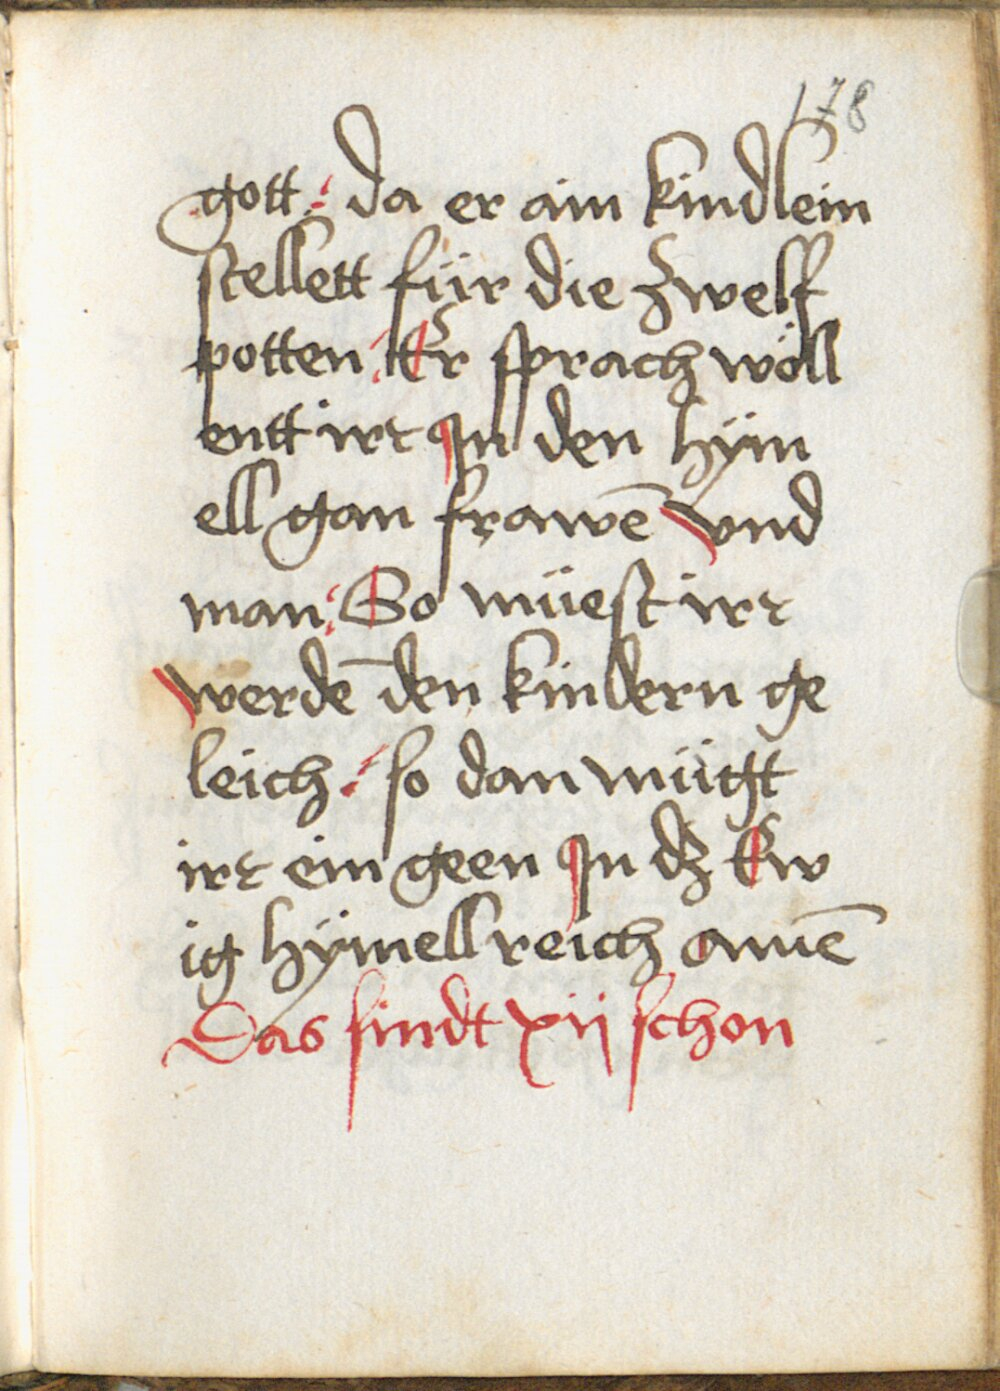 178
gott : da er ain kindlein
stellett für die zwelf
potten : Er sprach wöll
entt irr Jn den hÿm
ell gan frawē vnd
man : So müest irr
werdē den kindern ge
leich : so dan mügt
irr ein geen Jn dz Ew
ig hÿmellreich amē
Das sindt xij schon